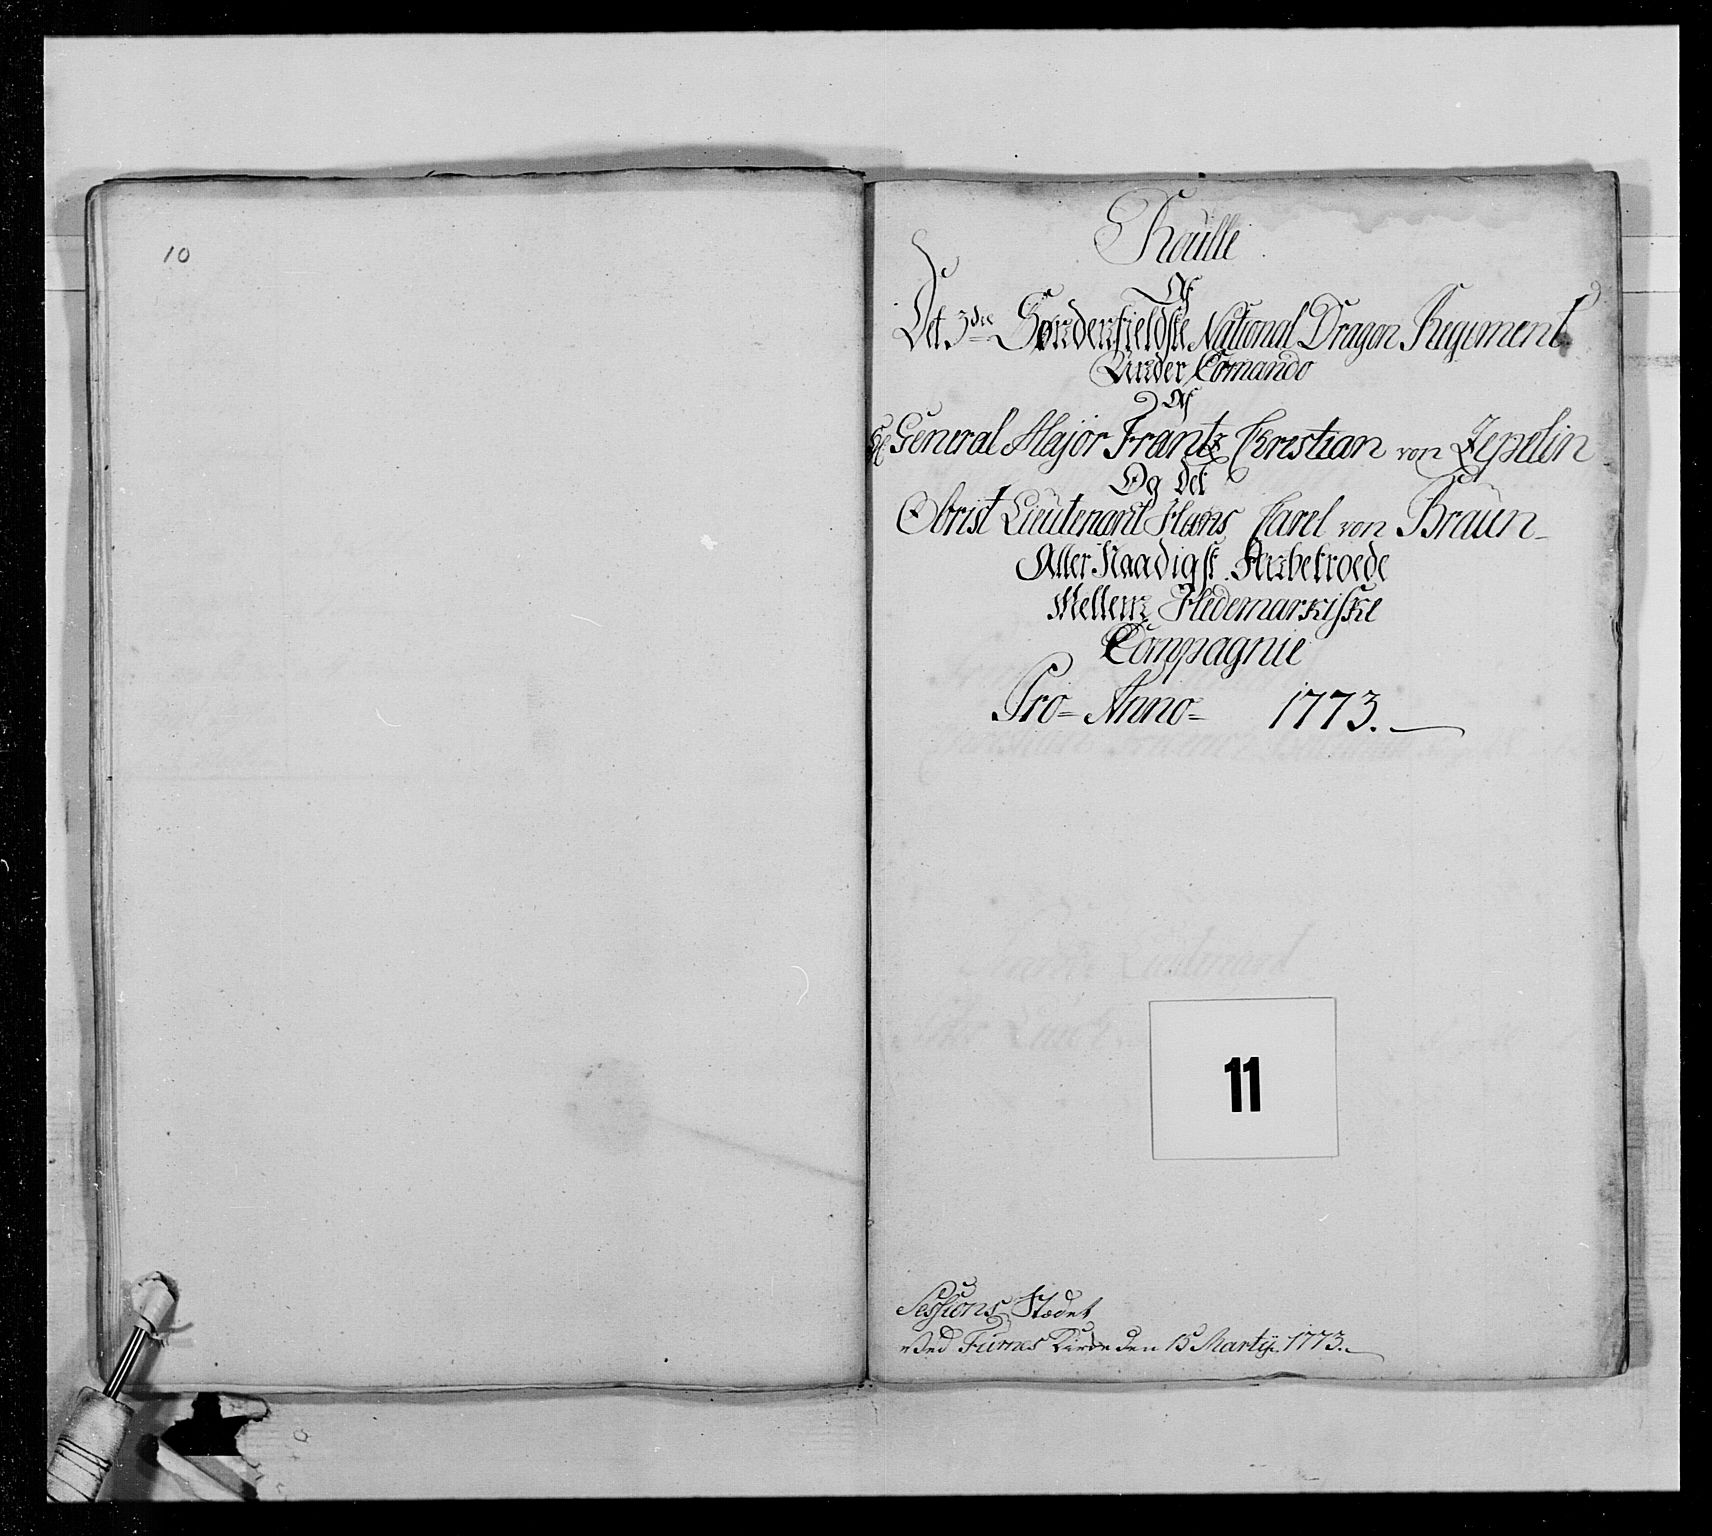 10
Roulle
Af
Det 3die Søndenfieldske National Dragon Regiment
Under Comando
Af
Hr General Major Frantz Christian von Zepelin
Og det
Obrist Lieutenant Hans Carel von Braun
Aller Naadigst Anbetroede
Mellem Hedemarkiske
Compagnie
Pro = Anno = 1773.
11
Sessions Stædet
Ved Furnes Kirke den 15 Martij 1773.